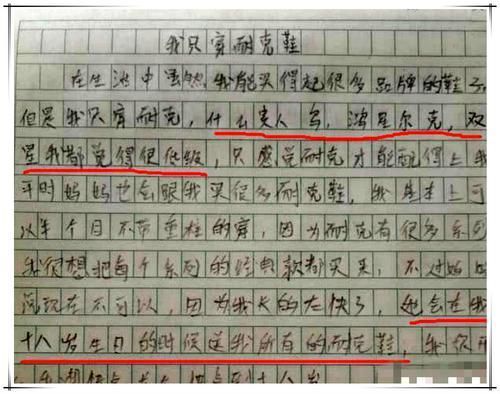 我只穿耐克鞋
在生活中虽然我能买得起很多品牌的鞋子
但是我只穿耐克，什么贵人鸟，鸿星尔克，双
星我都觉得很低级，只感觉耐克才能配得上我
平时妈妈也会跟我买很多耐克鞋，我基本上可
以半个月不带重样的穿，因为耐克有很多系列
我很想把每个系列的经典款都买来，不过妈妈
说现在不可以，因为我长的太快了，她会在我
十八岁生日的时候送我所有的耐克鞋，我很